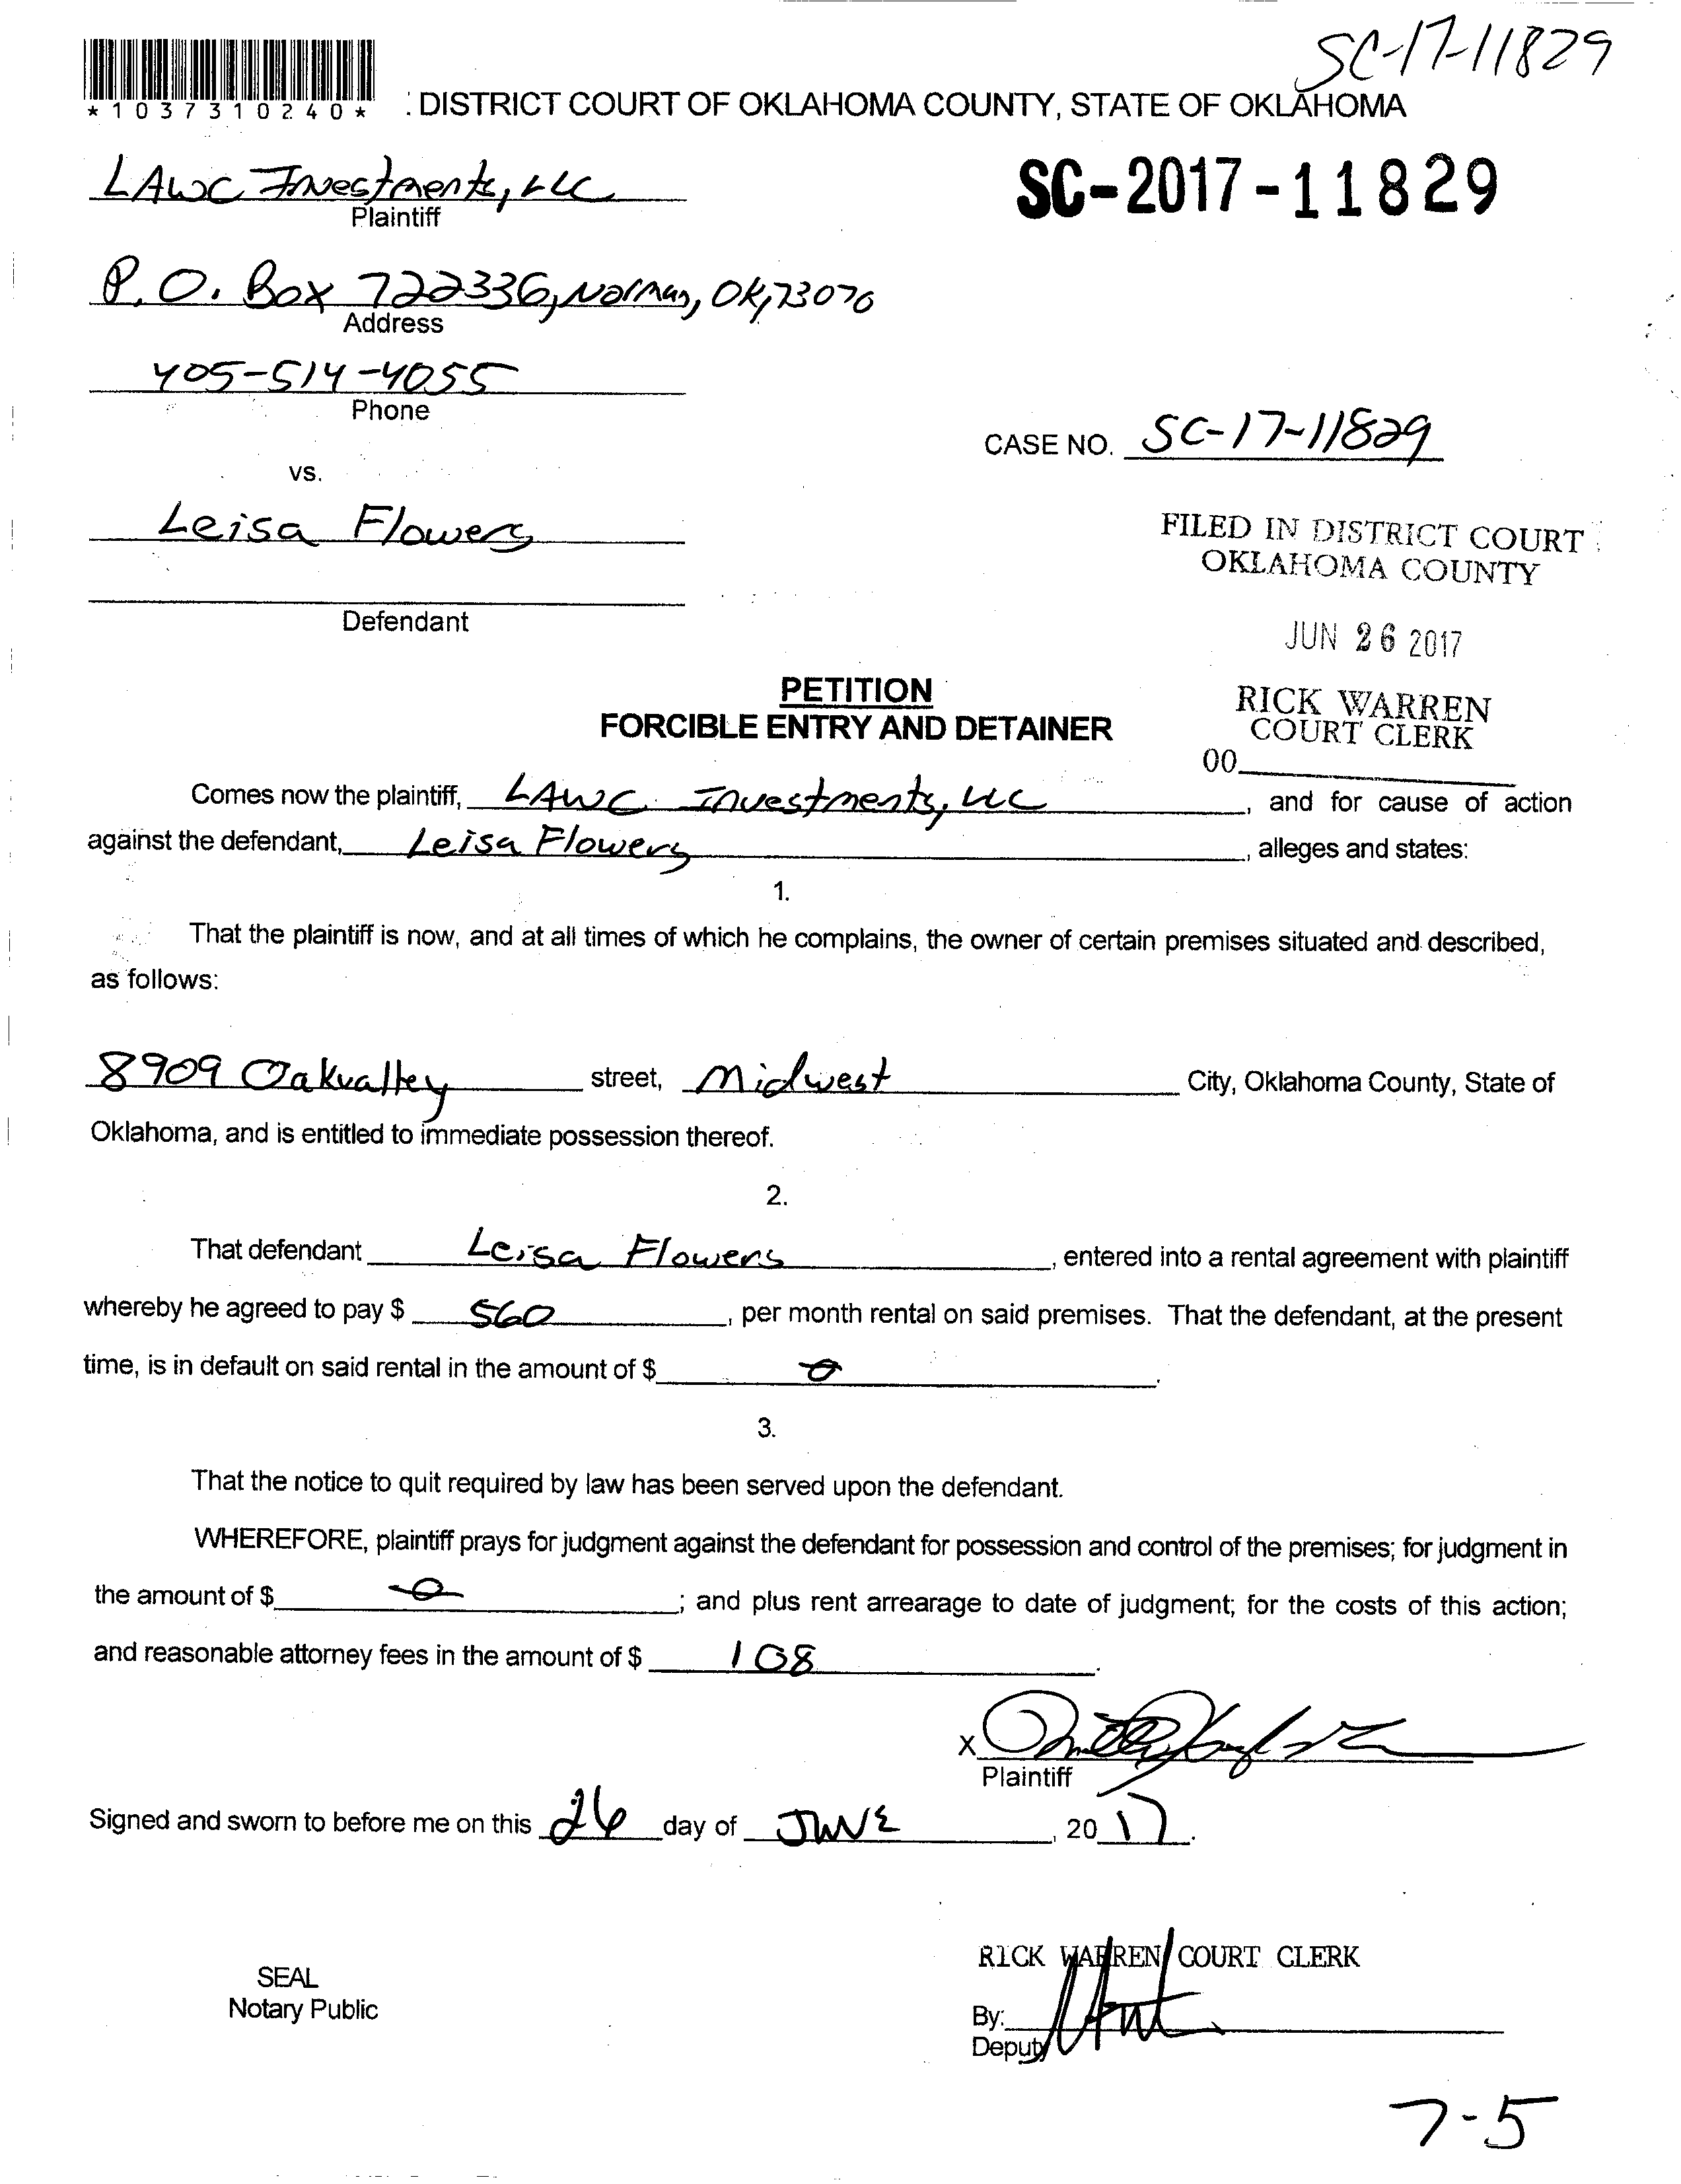 SC-17-11829
*1037310240*
: DISTRICT COURT OF OKLAHOMA COUNTY, STATE OF OKLAHOMA
LAWC Investments, LLC
Plaintiff
SC-2017-11829
P.O. Box 722336, Norman, OK, 73070
Address
405-514-4055
Phone
CASE NO. SC-17-11829
vs.
Leisa Flowers
Defendant
FILED IN DISTRICT COURT
OKLAHOMA COUNTY
JUN 26 2017
RICK WARREN
COURT CLERK
00
PETITION
FORCIBLE ENTRY AND DETAINER
Comes now the plaintiff, LAWC Investments, LLC, and for cause of action
against the defendant, Leisa Flowers, alleges and states:
1.
That the plaintiff is now, and at all times of which he complains, the owner of certain premises situated and described,
as follows:
8909 Oakvalley street, Midwest City, Oklahoma County, State of
Oklahoma, and is entitled to immediate possession thereof.
2.
That defendant Leisa Flowers, entered into a rental agreement with plaintiff
whereby he agreed to pay $ 560, per month rental on said premises. That the defendant, at the present
time, is in default on said rental in the amount of $ 0.
3.
That the notice to quit required by law has been served upon the defendant.
WHEREFORE, plaintiff prays for judgment against the defendant for possession and control of the premises; for judgment in
the amount of $ 0; and plus rent arrearage to date of judgment; for the costs of this action;
and reasonable attorney fees in the amount of $ 108.
X
Plaintiff
Signed and sworn to before me on this 26 day of JUNE, 2017.
RICK WARREN COURT CLERK
SEAL
Notary Public
By:
Deputy
7-5